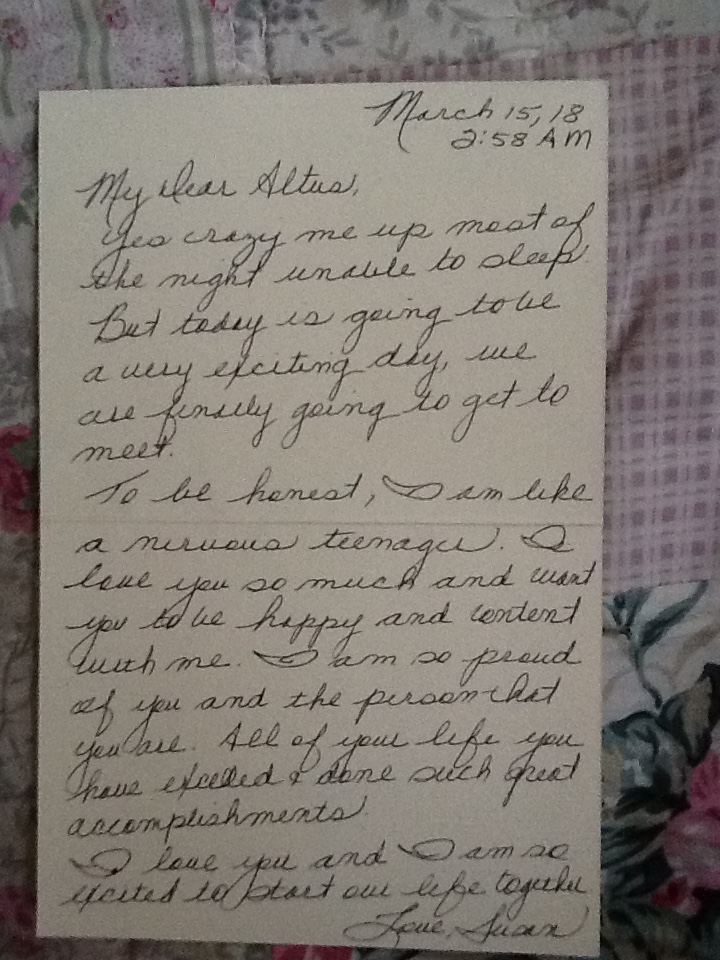 March 15, 18
2:58 AM
My dear Altus,
yes crazy me up most of
the night unable to sleep.
But today is going to be
a very exciting day, we
are finally going to get to
meet.
To be honest, I am like
a nervous teenager. I
love you so much and want
you to be happy and content
with me. I am so proud
of you and the person that
you are. All of your life you
have excelled & done such great
accomplishments.
I love you and I am so
excited to start our life together
Love, Susan